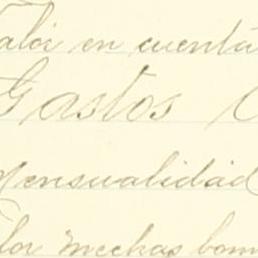 Valor en cuenta
Gastos
Mensualidad
Valor mechas